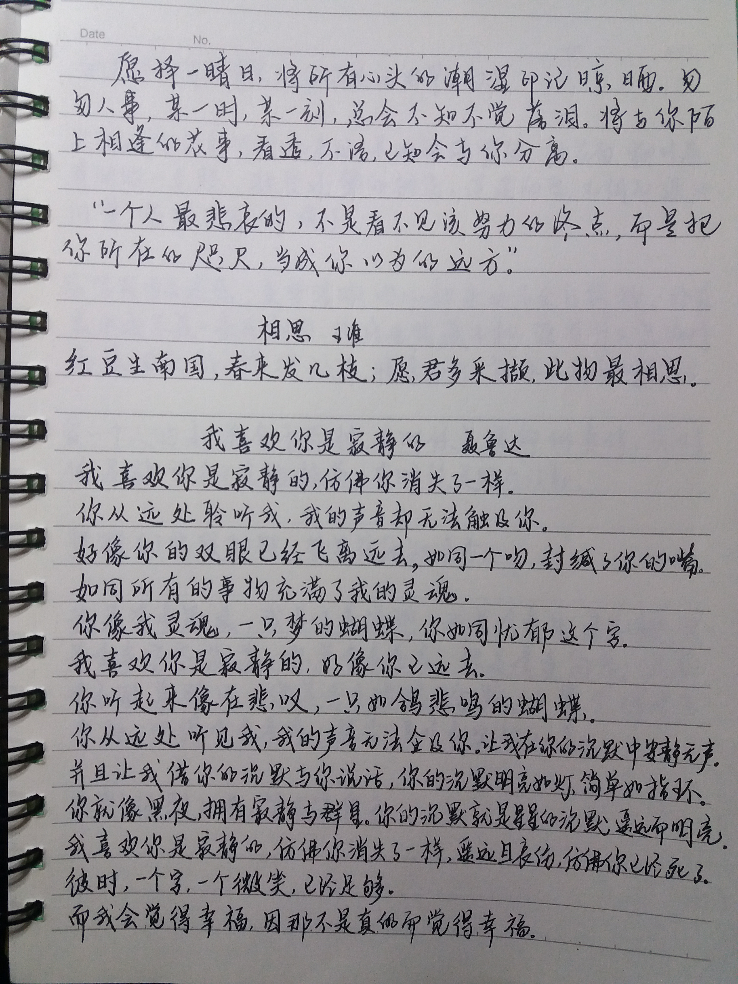 Date
No.
愿择一晴日，将所有心头的潮湿印记晾晒。匆
匆人事，某一时，某一刻，总会不知不觉落泪。将与你陌
上相逢的花事，看透，不语，已知会与你分离。
“一个人最悲哀的，不是看不见该努力的终点，而是把
你所在的咫尺，当成你以为的远方。”
相思 王维
红豆生南国，春来发几枝；愿君多采撷，此物最相思。
我喜欢你是寂静的 聂鲁达
我喜欢你是寂静的，仿佛你消失了一样。
你从远处聆听我，我的声音却无法触及你。
好像你的双眼已经飞离远去，如同一个吻，封缄了你的嘴。
如同所有的事物充满了我的灵魂。
你像我灵魂，一只梦的蝴蝶，你如同忧郁这个字。
我喜欢你是寂静的，好像你已远去。
你听起来像在悲叹，一只如鸽悲鸣的蝴蝶。
你从远处听见我，我的声音无法企及你。让我在你的沉默中安静无声。
并且让我借你的沉默与你说话，你的沉默明亮如灯，简单如指环。
你就像黑夜，拥有寂静与群星。你的沉默就是星星的沉默，遥远而明亮。
我喜欢你是寂静的，仿佛你消失了一样，遥远且哀伤，仿佛你已经死了。
彼时，一个字，一个微笑，已经足够。
而我会觉得幸福，因那不是真的而觉得幸福。